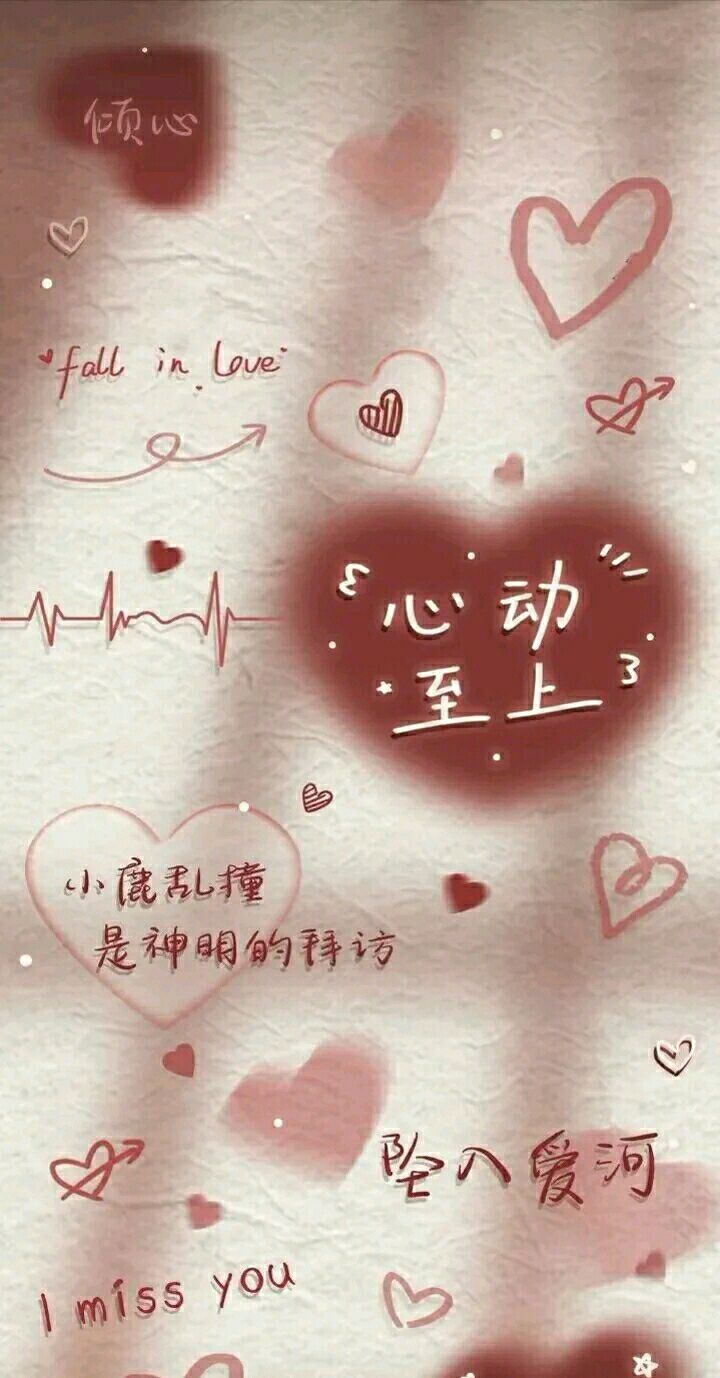 倾心
fall in love
心动
至上
小鹿乱撞
是神明的拜访
坠入爱河
I miss you